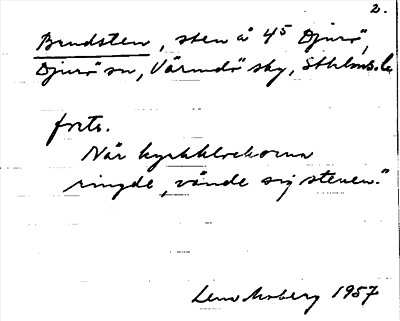 2.
Brudsten, sten å 4⁵ Djurö,
Djurö sn, Värmdö sky, Sthlms. l
forts.
När kyrkklockorna
ringde, vände sig stenen."
Lena Moberg 1957